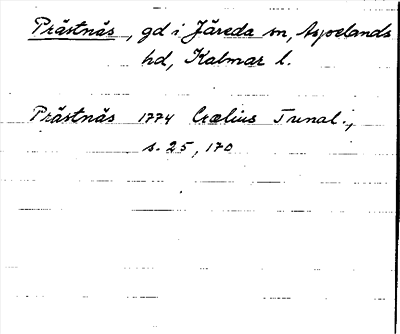 Prästnäs, gd i Järeda sn, Aspelands
hd, Kalmar l.
Prästnäs 1774 Crælius Tunal.,
s. 25, 170